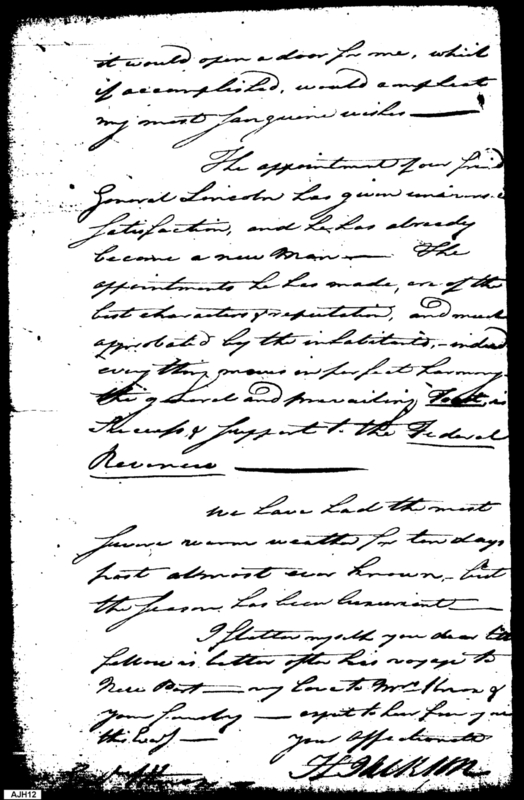 it would open a door for me, which
if accomplished, would compleat
my most sanguine wishes —
The appointment of our friend
General Lincoln has given
satisfaction, and he has already
become a new Man — The
appointments he has made, are of the
best characters & reputation, and much
approbated by the inhabitants, - indeed
every thing moves in perfect harmony
the general and prevailing Toast, is
Success & support to the Federal
Revenue —
We have had the most
severe warm weather for ten days
past almost ever known, - but
the season, has been luxuriant —
I flatter myself you dear little
fellow is better after his voyage to
New Port — my love to Mrs. Knox &
your family — expect to hear from you
this Eveg —
your affectionate
H Jackson
AJH12